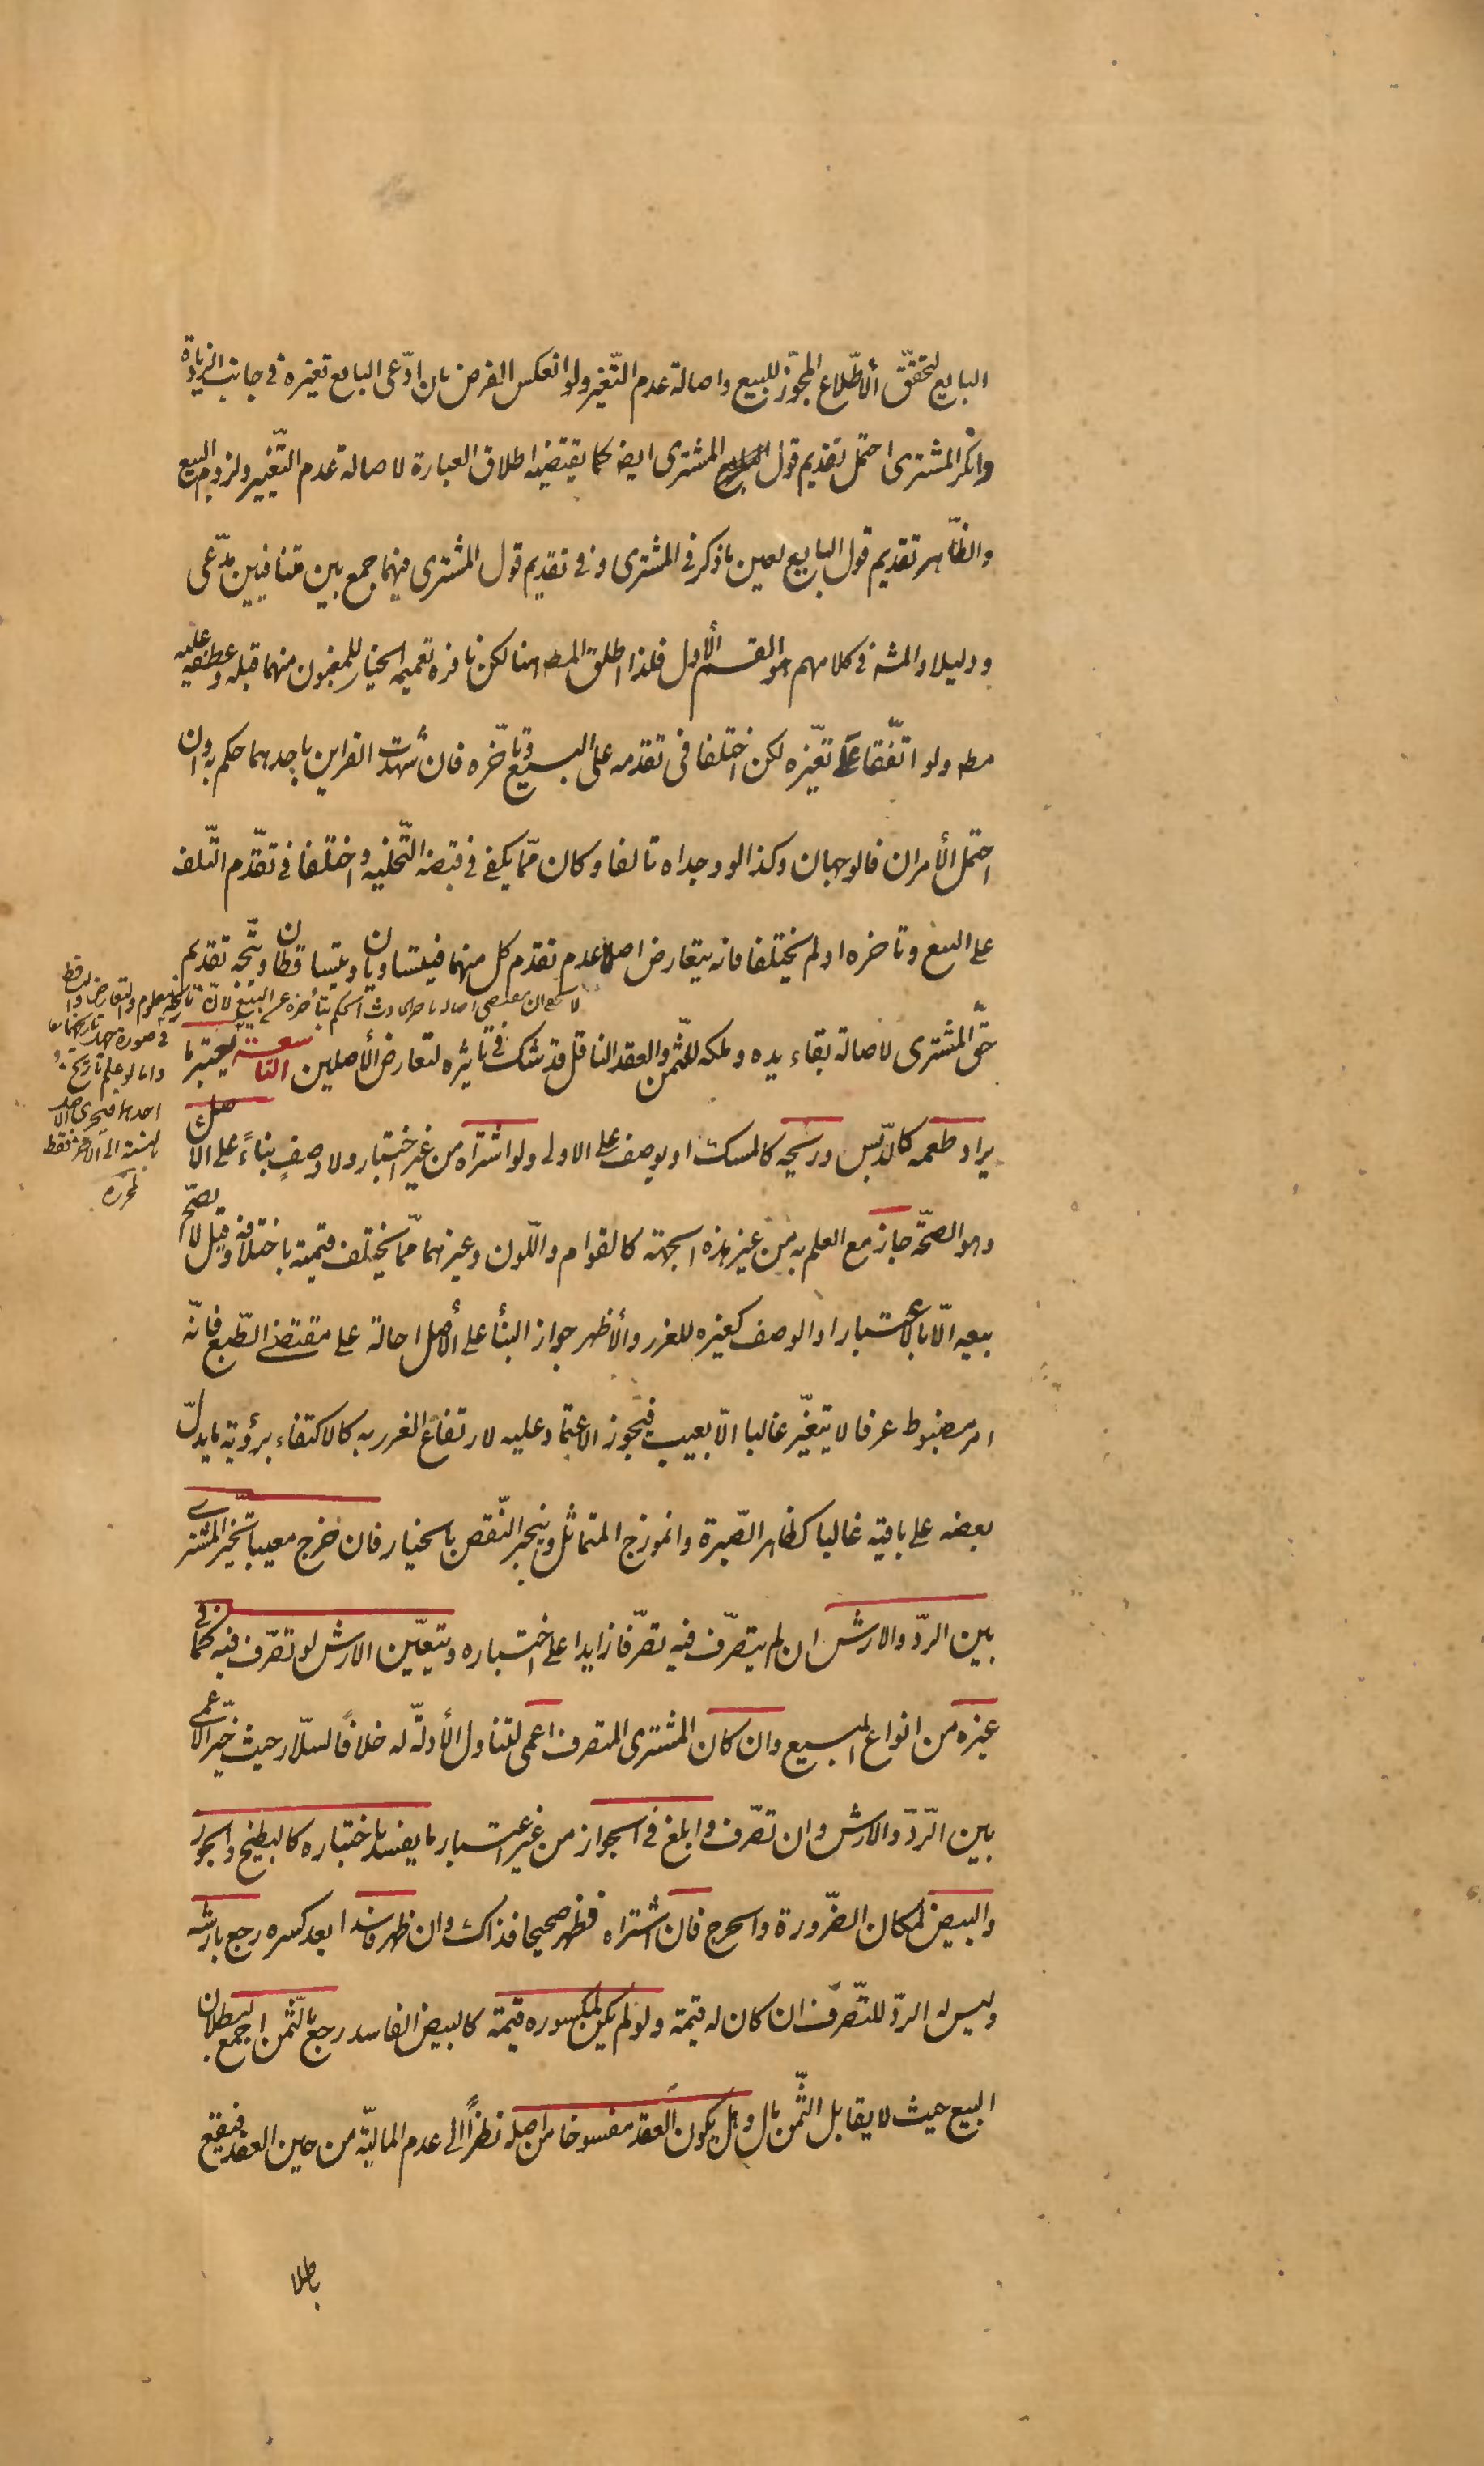 البايع لتحقّق الأطّلاع المجوّز للبيع واصالة عدم التّغير ولو انعكس الفرض بان ادّعى البايع تغيره في جانب الزيادة
وانكر المشترى احتمل تقديم قول المشترى ايضا كما يقتضيه اطلاق العبارة لاصالة عدم التّغيير ولزوم البيع
والظّاهر تقديم قول البايع لعين ما ذكر في المشترى و في تقديم قول المشترى فيهما جمع بين متنافيين مدّعى
ودليلا والمشه في كلامهم هو القسم الأول فلذا اطلق المصه هنا لكن نافره تعميمه الخيار للمغبون منهما قبله وعطفه عليه
مطه ولو اتّفقا على تغيّره لكن اختلفا في تقدمه على البيع وتأخّره فان شهدت القراين باحدهما حكم به وان
احتمل الأمران فالوجهان وكذا لو وجداه تالفا وكان ممّا يكفي في قبضه التّخليه واختلفا في تقدّم التّلف
على البيع وتاخره او لم يختلفا فانه يتعارض اصلا عدم تقدم كل منهما فيتساويان ويتساقطان ويتّجه تقديم
حقّ المشترى لاصالة بقاء يده وملكه للثّمن والعقد الناقل قد شك في تاثيره لتعارض الأصلين التاسعة يعتبر ما
يراد طعمه كالدّبس وريحه كالمسك او يوصف على الاولى ولو اشتراه من غير اختبار ولا وصفٍ بناءً على الاصل
وهو الصحّة جاز مع العلم به من غير هذه الجهة كالقوام واللّون وغيرهما ممّا يختلف قيمته باختلافه وقيل لا يصحّ
بيعه الّا بالاختبار او الوصف كغيره للغرر والأظهر جواز البنأ على الأصل احالة على مقتضى الطّبع فانّه
امر مضبوط عرفا لا يتغيّر غالبا الّا بعيب فيجوز الاعتماد عليه لارتفاع الغرر به كالاكتفاء برؤية ما يدلّ
بعضه على باقيه غالبا كظاهر الصّبرة وانموزج المتماثل وينجبر النّقص بالخيار فان خرج معيبا تخيّر المشترى
بين الردّ والارش ان لم يتصرّف فيه تصرّفا زايدا على اختباره ويتعيّن الارش لو تصرّف فيه كما في
غيره من انواع المبيع وان كان المشترى المتصرف اعمى لتناول الأدلّة له خلافًا لسلّار حيث خيّر الاعمى
بين الرّدّ والارش وان تصرّف وابلغ في الجواز من غير اعتبار ما يفسد باختباره كالبطيخ والجوز
والبيض لمكان الضّرورة والحرج فان اشتراه فظهر صحيحا فذاك وان ظهر فاسدا بعد كسره رجع بارشه
وليس له الردّ للتّصرّف ان كان له قيمة ولو لم يكن لمكسوره قيمة كالبيض الفاسد رجع بالثّمن اجمع لبطلان
البيع حيث لا يقابل الثّمن مال وهل يكون العقد مفسوخا من اصله نظرًا الى عدم الماليّة من حين العقد فيقع
باطلا
تاريخه معلوم والتعارض
في صورة جهل تاريخهما
واما لو علم تاريخ
احدهما فيجرى الاصل
بالنسبة الى الاخر فقط